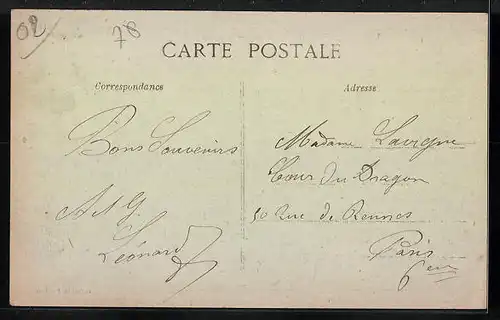 02
78
CARTE POSTALE
Correspondance
Bons Souvenirs
A et G
Léonard
Adresse
Madame Lavigne
Cour du Dragon
50 Rue de Rennes
Paris
6em